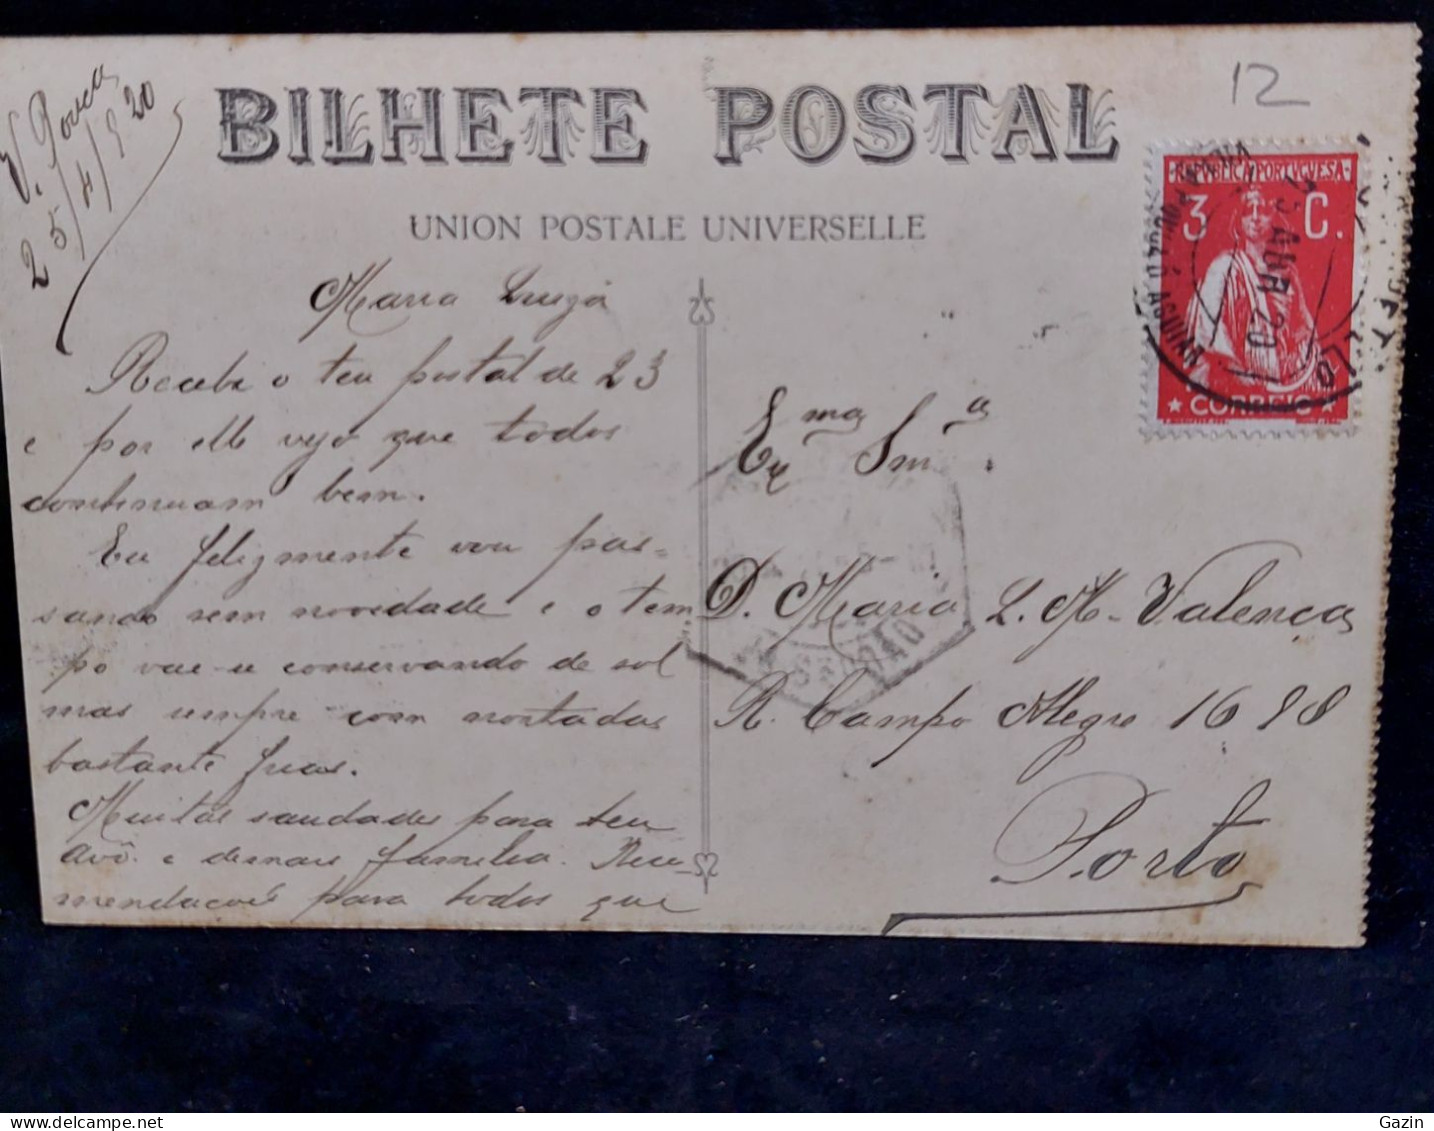 V. Povoa
25/4/920
12
BILHETE POSTAL
UNION POSTALE UNIVERSELLE
REPUBLICA PORTUGUESA
3 C.
CORREIO
25 ABR 20
Maria Luiza
Recebi o teu postal de 23
e por elle vejo que todos
continuam bem.
Eu felizmente vou pas-
sando sem novidade e o tem
po vae-se conservando de sol
mas sempre com nortadas
bastante frias.
Muitas saudades para teu
Avô e demais familia. Reco-
mendações para todos que
Exma Snra.
D. Maria L. M. Valença
R. Campo Alegre 1698
Porto
Gazin